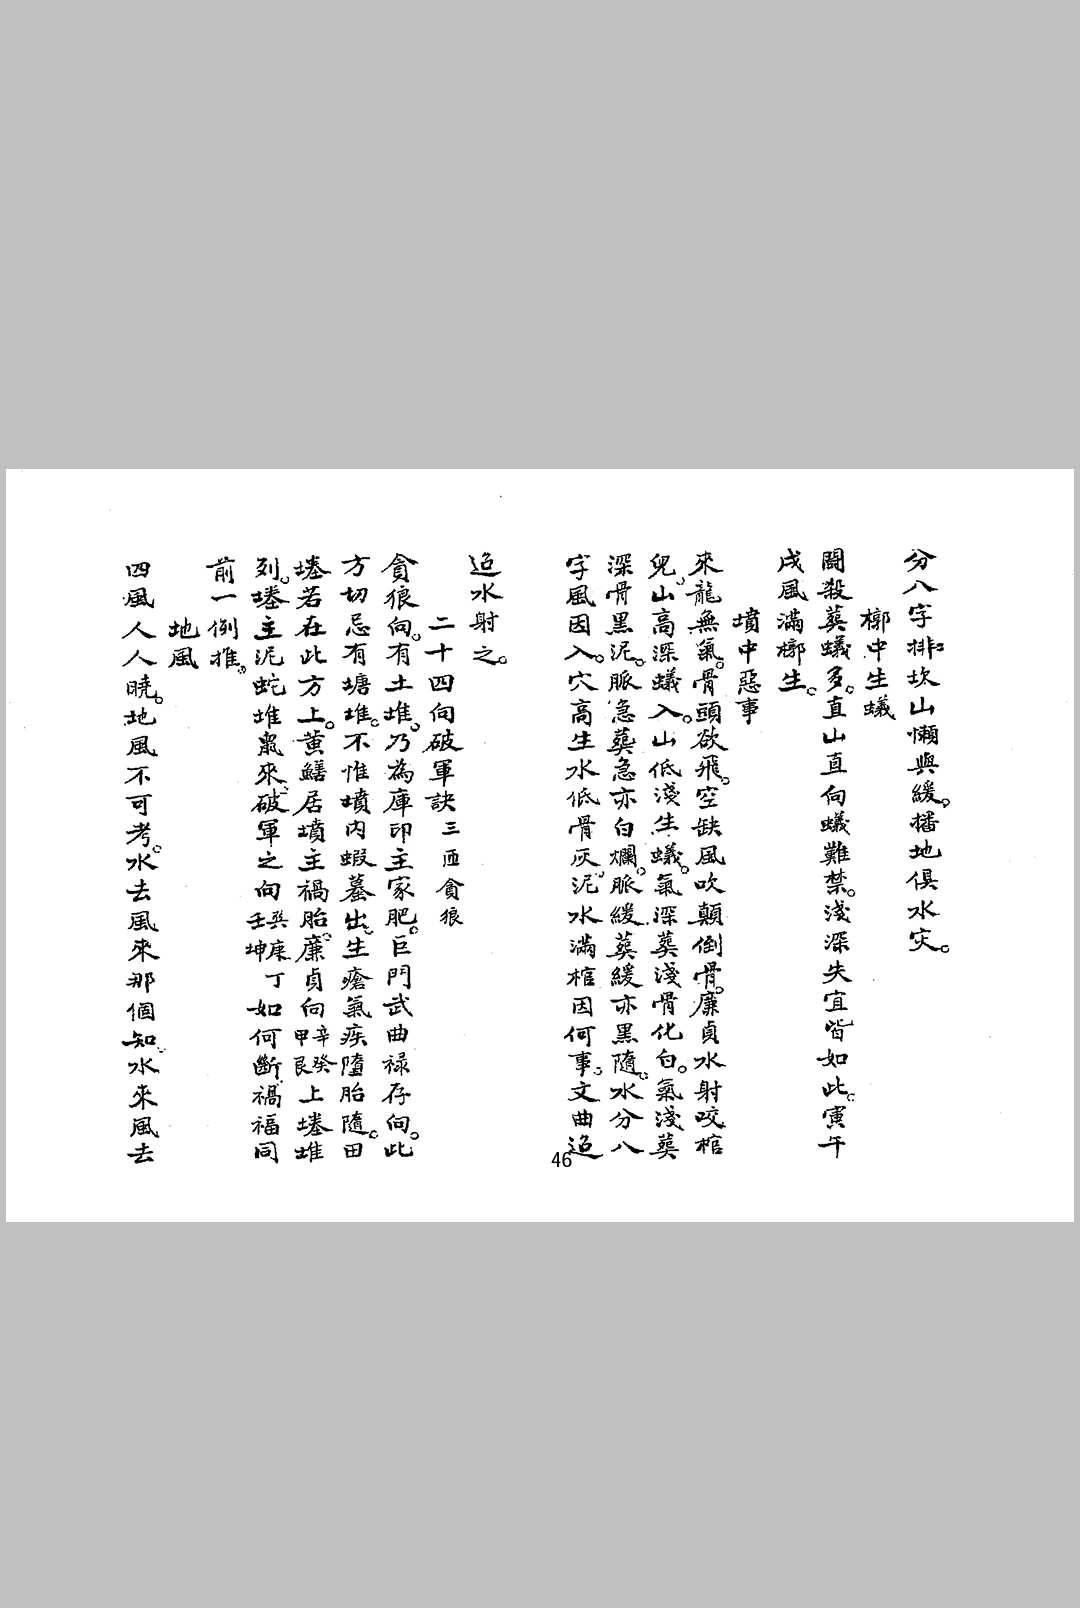 分八字排。坎山懶與緩。播地俱水灾。
槨中生蟻
鬭殺葬蟻多。直山直向蟻難禁。淺深失宜皆如此。寅午
戌風滿槨生。
墳中惡事
來龍無氣。骨頭欲飛。空缺風吹顛倒骨。廉貞水射咬棺
兒。山高深蟻入。山低淺生蟻。氣深葬淺骨化白。氣淺葬
深骨黑泥。脈急葬急亦白爛。脈緩葬緩亦黑隨。水分八
字風因入。穴高生水低骨灰泥。水滿棺因何事。文曲迢
46
迢水射之。
二十四向破軍訣 三 貪狼
貪狼向。有土堆。乃為庫印主家肥。巨門武曲祿存向。此
方切忌有塘堆。不惟墳內蝦蟇出。生瘡氣疾墮胎隨。田
墋若在此方上。黄鱔居墳主禍胎。廉貞向辛癸甲艮上墋堆
列。墋主泥蛇堆鼠來。破軍之向巽庚壬坤丁如何斷。禍福同
前一例推。
地風
四風人人曉。地風不可考。水去風來那個知。水來風去